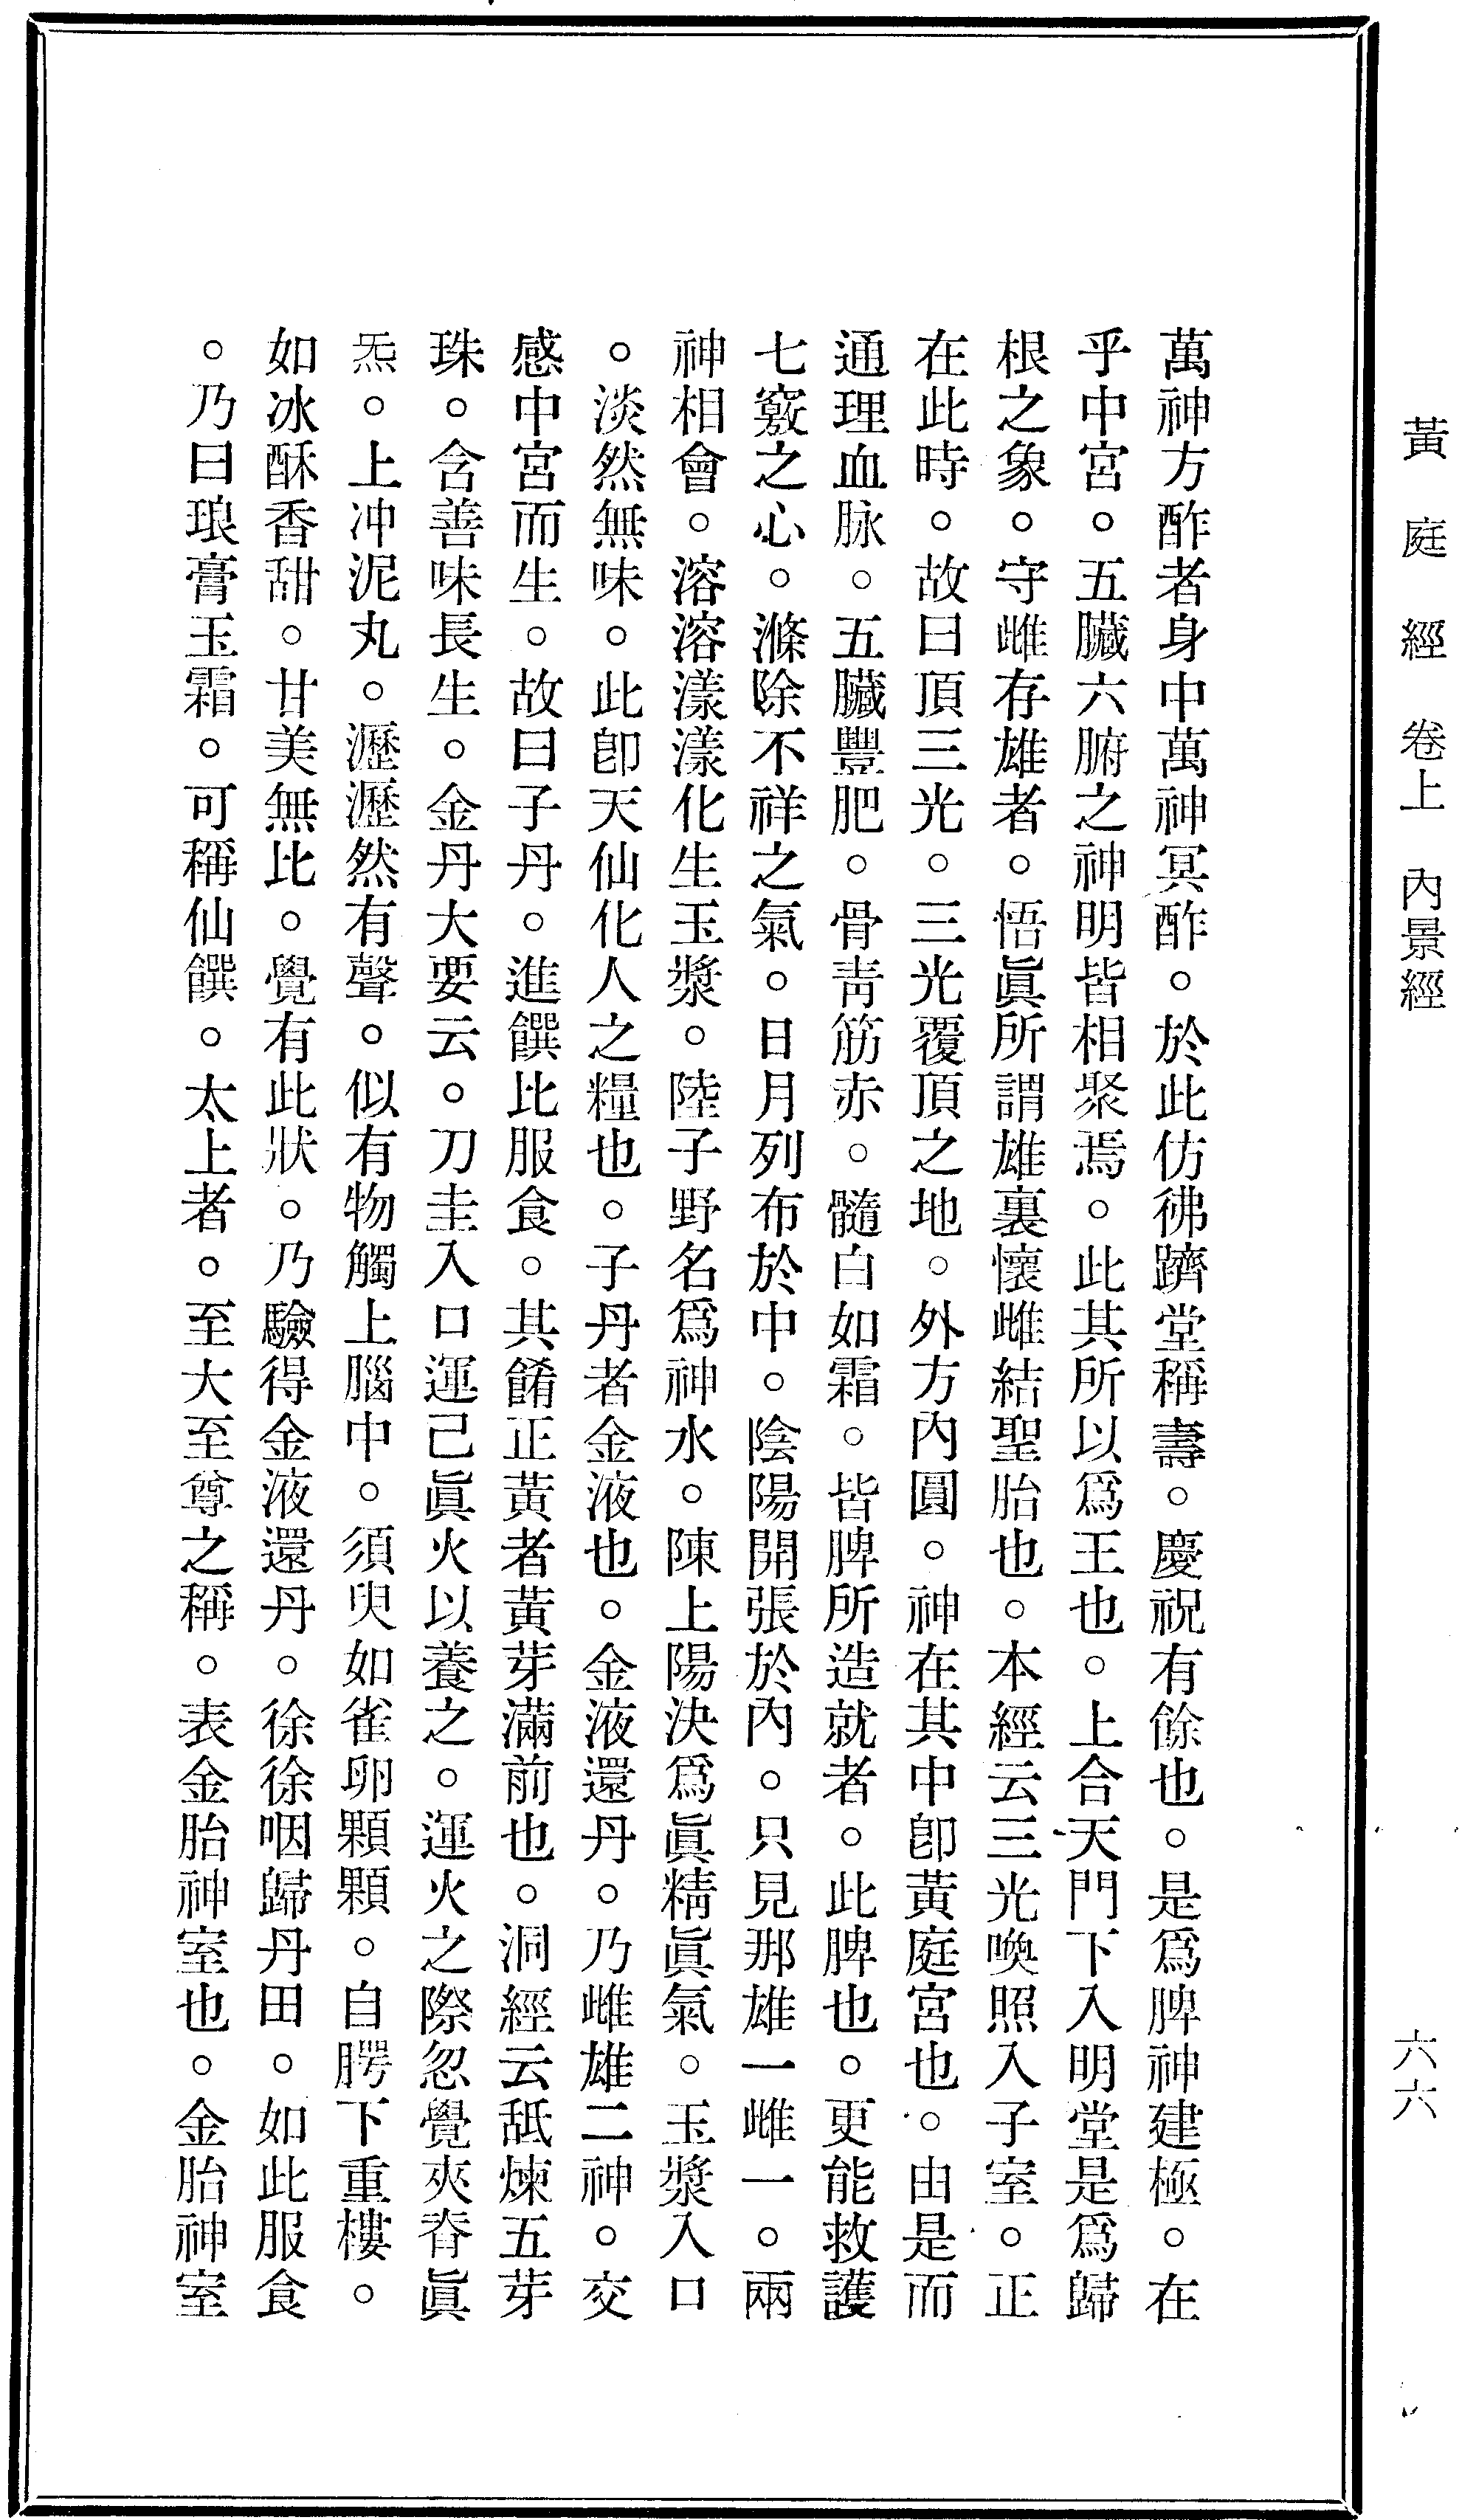 黃庭經 卷上 內景經 六六
萬神方酢者身中萬神冥酢。於此仿彿躋堂稱壽。慶祝有餘也。是爲脾神建極。在
乎中宮。五臟六腑之神明皆相聚焉。此其所以爲王也。上合天門下入明堂是爲歸
根之象。守雌存雄者。悟眞所謂雄裏懷雌結聖胎也。本經云三光喚照入子室。正
在此時。故曰頂三光。三光覆頂之地。外方內圓。神在其中卽黃庭宮也。由是而
通理血脉。五臟豐肥。骨靑筋赤。髓白如霜。皆脾所造就者。此脾也。更能救護
七竅之心。滌除不祥之氣。日月列布於中。陰陽開張於內。只見那雄一雌一。兩
神相會。溶溶漾漾化生玉漿。陸子野名爲神水。陳上陽決爲眞精眞氣。玉漿入口
。淡然無味。此卽天仙化人之糧也。子丹者金液也。金液還丹。乃雌雄二神。交
感中宮而生。故曰子丹。進饌比服食。其餚正黃者黃芽滿前也。洞經云舐煉五芽
珠。含善味長生。金丹大要云。刀圭入口運己眞火以養之。運火之際忽覺夾脊眞
炁。上冲泥丸。瀝瀝然有聲。似有物觸上腦中。須臾如雀卵顆顆。自腭下重樓。
如冰酥香甜。甘美無比。覺有此狀。乃驗得金液還丹。徐徐咽歸丹田。如此服食
。乃曰琅膏玉霜。可稱仙饌。太上者。至大至尊之稱。表金胎神室也。金胎神室